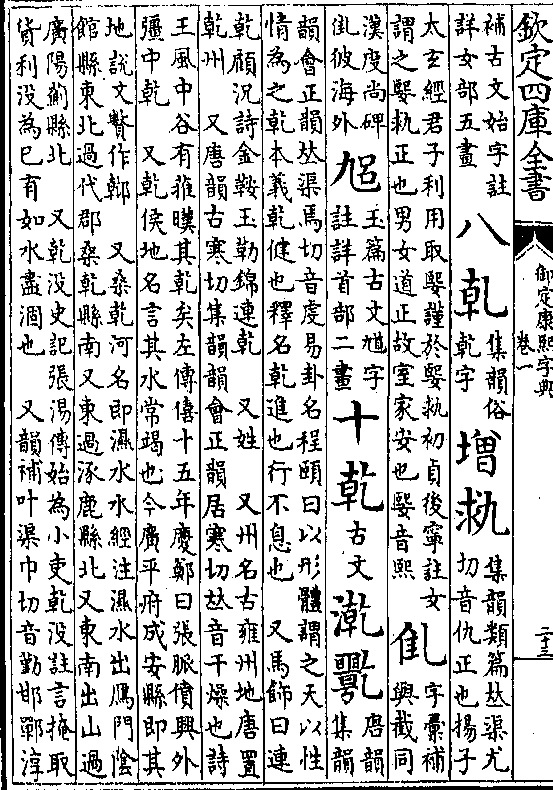 欽定四庫全書
御定康熙字典
卷一
二十三
補古文始字註
詳女部五畫
八
乹
集韻俗
乾字
增
集韻類篇𠀤渠尤
切音仇正也揚子
太玄經君子利用取嫛謹於嫛執初貞後寧註女
謂之嫛執正也男女道正故室家安也嫛音熙
字彙補
與截同
漢度尚碑
彼海外
玉篇古文馗字
註詳首部二畫
十
乾
古文
漧
唐韻
集韻
韻會正韻𠀤渠焉切音虔易卦名程頤曰以形體謂之天以性
情為之乾本義乾健也釋名乾進也行不息也 又馬飾曰連
乾顧況詩金鞍玉勒錦連乾 又姓 又州名古雍州地唐置
乾州 又唐韻古寒切集韻韻會正韻居寒切𠀤音干燥也詩
王風中谷有蓷暵其乾矣左傳僖十五年慶鄭曰張脈僨興外
彊中乾 又乾侯地名言其水常竭也今廣平府成安縣即其
地說文贅作 又桑乾河名即濕水水經注濕水出鴈門陰
館縣東北過代郡桑乾縣南又東過涿鹿縣北又東南出山過
廣陽薊縣北 又乾没史記張湯傳始為小吏乾没註言掩取
貨利没為已有如水盡涸也 又韻補叶渠巾切音勤邯鄲淳